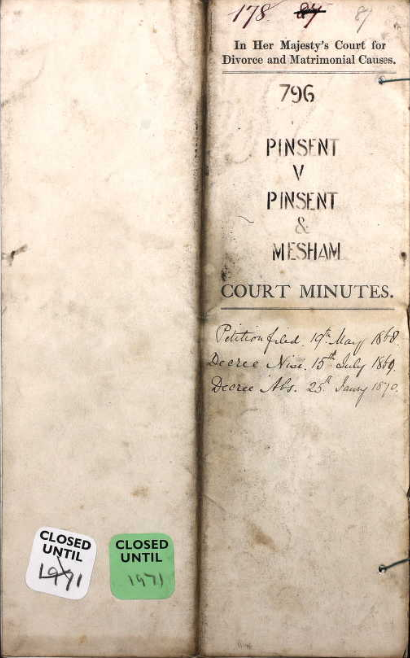 178 87 87
In Her Majesty's Court for
Divorce and Matrimonial Causes.
796
PINSENT
V
PINSENT
&
MESHAM
COURT MINUTES.
Petition filed. 19th May 1868
Decree Nisi. 15th July 1869.
Decree Abs. 25th Janry 1870.
CLOSED
UNTIL
1971
CLOSED
UNTIL
1971